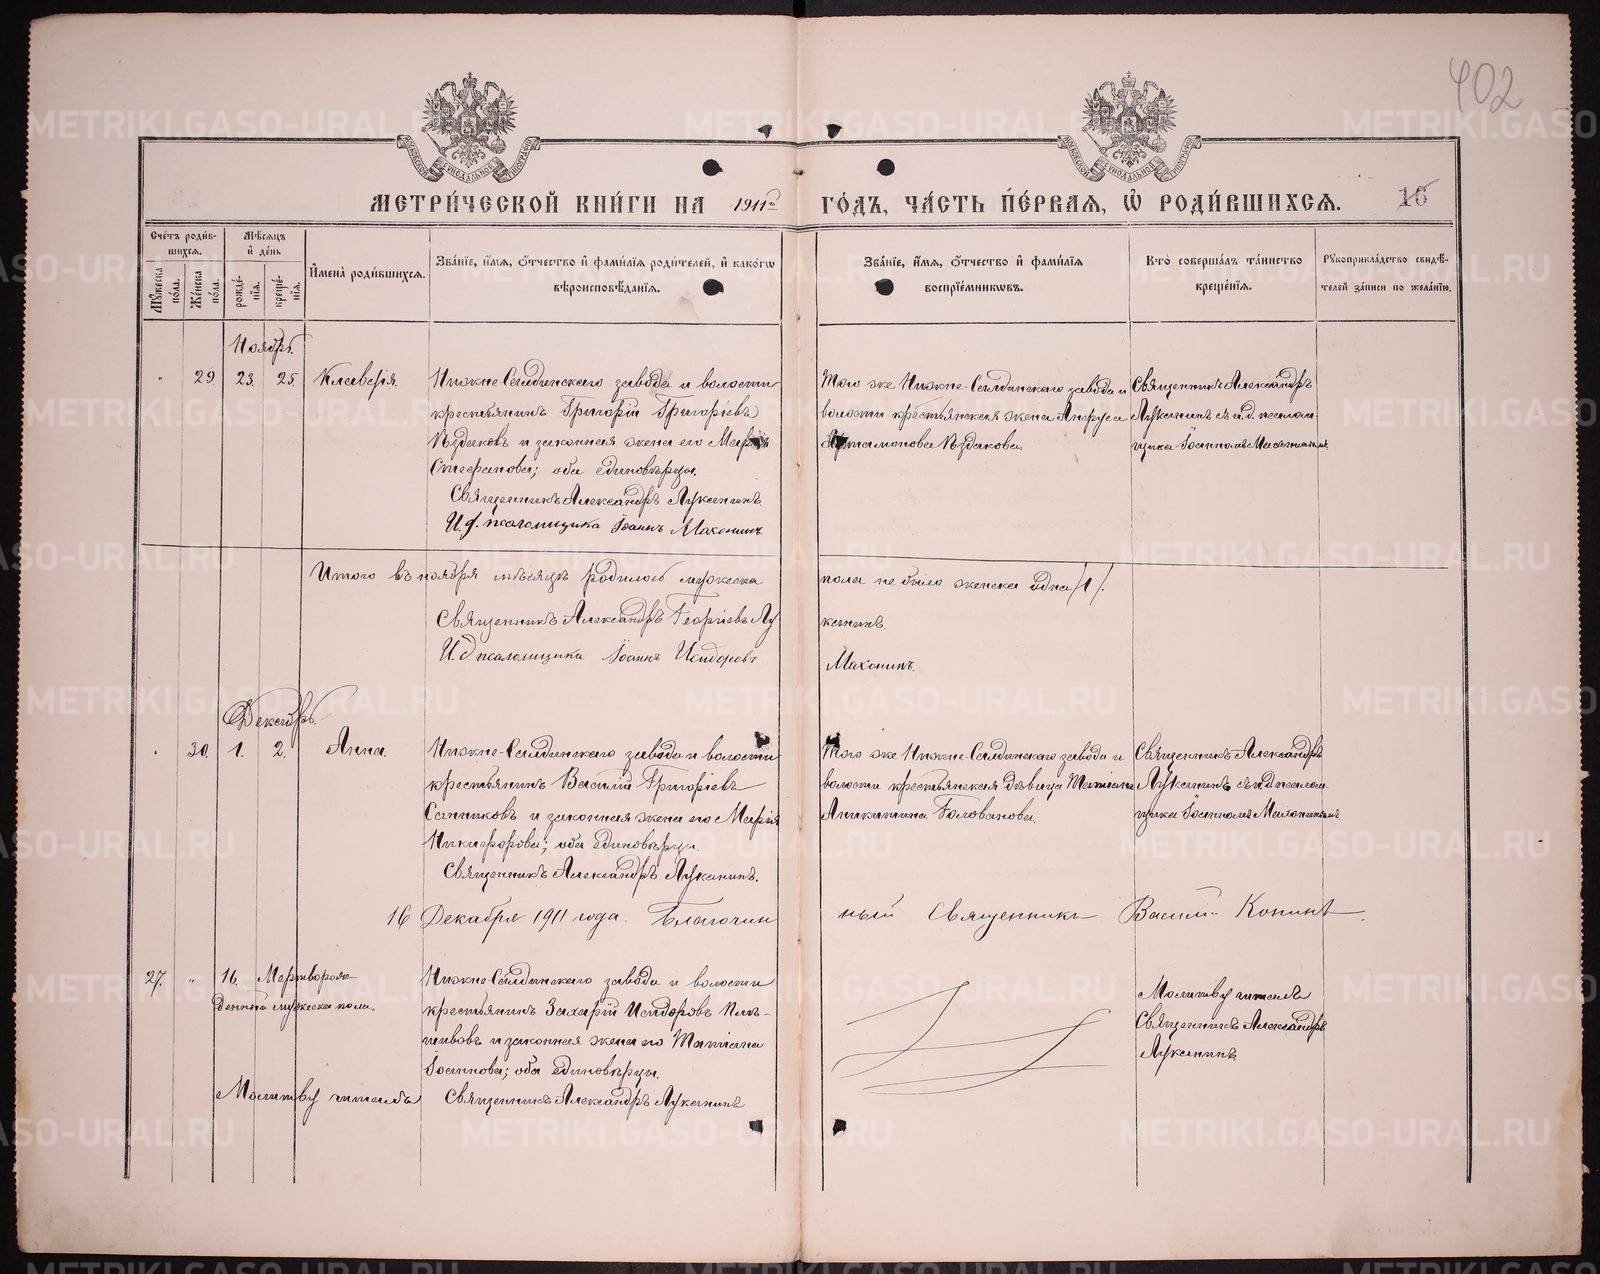 402
МЕТРИ́ЧЕСКОЙ КНИ́ГИ НА 1911й ГО́ДЪ, ЧА́СТЬ ПЕ́РВАЯ, Ѡ РОДИ́ВШИХСЯ.
16
Сче́тъ роди́в-
шихся.
Му́жеска по́ла.
Же́нска по́ла.
Мѣ́сяцъ и де́нь
рожде́-
нія.
креще́-
нія.
Имена̀ роди́вшихся.
Зва́ніе, и́мя, о́тчество и фами́лія роди́телей, и како́гѡ
вѣроисповѣ́данія.
Зва́ніе, и́мя, о́тчество и фами́лія
воспріе́мниковъ.
Кто̀ соверша́лъ та́инство
креще́нія.
Рукоприкла́дство свидѣ́-
телей за́писи по жела́нію.
Ноябрь.
" 29. 23. 25. Клавдія.
Нижне-Салдинскаго завода и волости
крестьянинъ Григорій Григоріевъ
и законная жена его Марія
Стефанова; оба единовѣрцы.
Священникъ Александръ Луканинъ.
И. д. псаломщика Іоаннъ Махонинъ.
Того же Нижне-Салдинскаго завода и
волости крестьянская жена
Артамонова
Священникъ Александръ
Луканинъ съ и.д. псалом-
щика Іоанномъ Махонинымъ.
Итого въ ноябрѣ мѣсяцѣ родилось мужеска
пола не было женска одна /1/.
Священникъ Александръ Георгіевъ Лу
канинъ.
И. д псаломщика Іоаннъ Исидоровъ
Махонинъ.
Декабрь.
" 30. 1. 2. Анна.
Нижне-Салдинскаго завода и волости
крестьянинъ Василій Григоріевъ
Санниковъ и законная жена его Марія
Никифорова; оба единовѣрцы.
Священникъ Александръ Луканинъ.
Того же Нижне-Салдинскаго завода и
волости крестьянская дѣвица Татіана
Аникитина Голованова.
Священникъ Александръ
Луканинъ съ и.д псалом-
щика Іоанномъ Махонинымъ.
16 Декабря 1911 года. Благочин
ный Священникъ Василій Конинъ.
27. " 16. Мертворож-
денный мужеска пола.
Нижне-Салдинскаго завода и волости
крестьянинъ Захарій Исидоровъ Плѣ-
шивовъ и законная жена его Татіана
Іоаннова; оба единовѣрцы.
Молитву читалъ
Священникъ Александръ Луканинъ
Молитву читалъ
Священникъ Александръ
Луканинъ.
METRIKI.GASO-URAL.RU